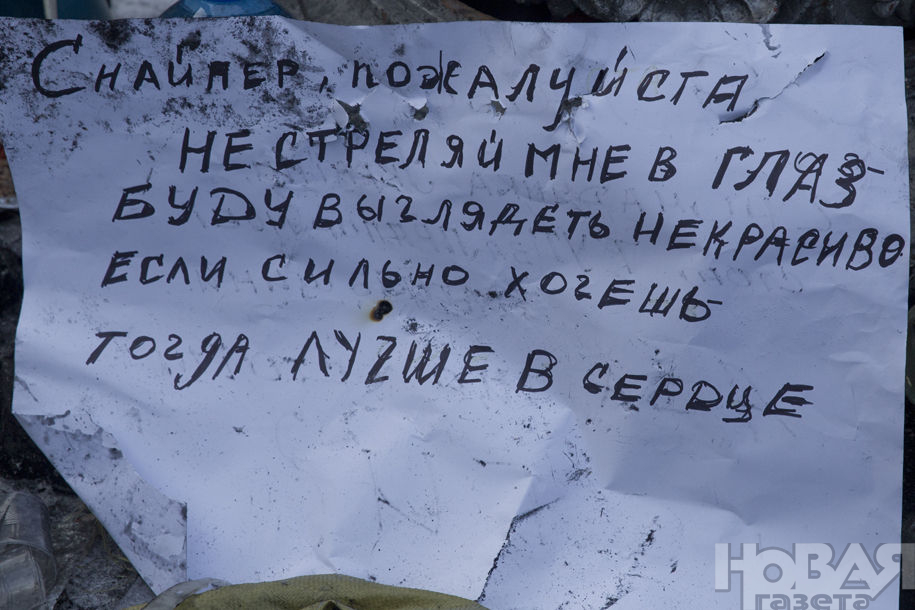 Снайпер, пожалуйста
не стреляй мне в глаз-
буду выглядеть некрасиво
если сильно хочешь-
тогда лучше в сердце
НОВАЯ
газета